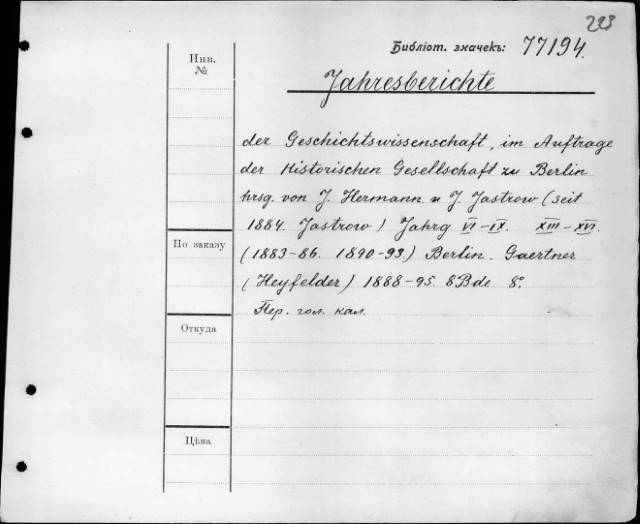 223
Библіот. значекъ: 77194.
Инв.
№
Jahresberichte
der Geschichtswissenschaft, im Auftrage
der Historischen Gesellschaft zu Berlin
hrsg. von J. Hermann u J. Jastrow (seit
1884. Jastrow) Jahrg VI-IX. XIII-XVI.
По заказу
(1883-86. 1890-93.) Berlin. Gaertner
(Heyfelder) 1888-95. 8 Bde 8°.
Пер. гол. кал.
Откуда
Цѣна